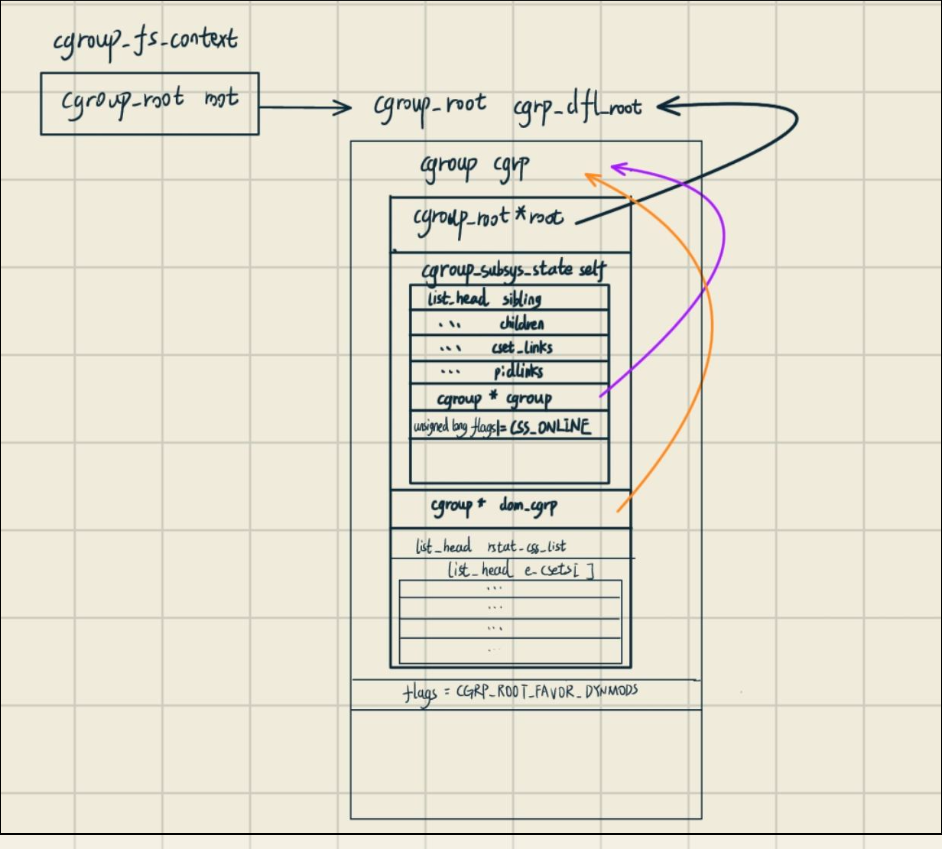 cgroup_fs_context
cgroup_root root
cgroup_root cgrp_dfl_root
cgroup cgrp
cgroup_root *root
cgroup_subsys_state self
list_head sibling
... children
... cset_links
... pidlinks
cgroup * cgroup
unsigned long flags |= CSS_ONLINE
cgroup * dom_cgrp
list_head rstat_css_list
list_head e_csets[ ]
...
...
...
...
flags = CGRP_ROOT_FAVOR_DYNMODS